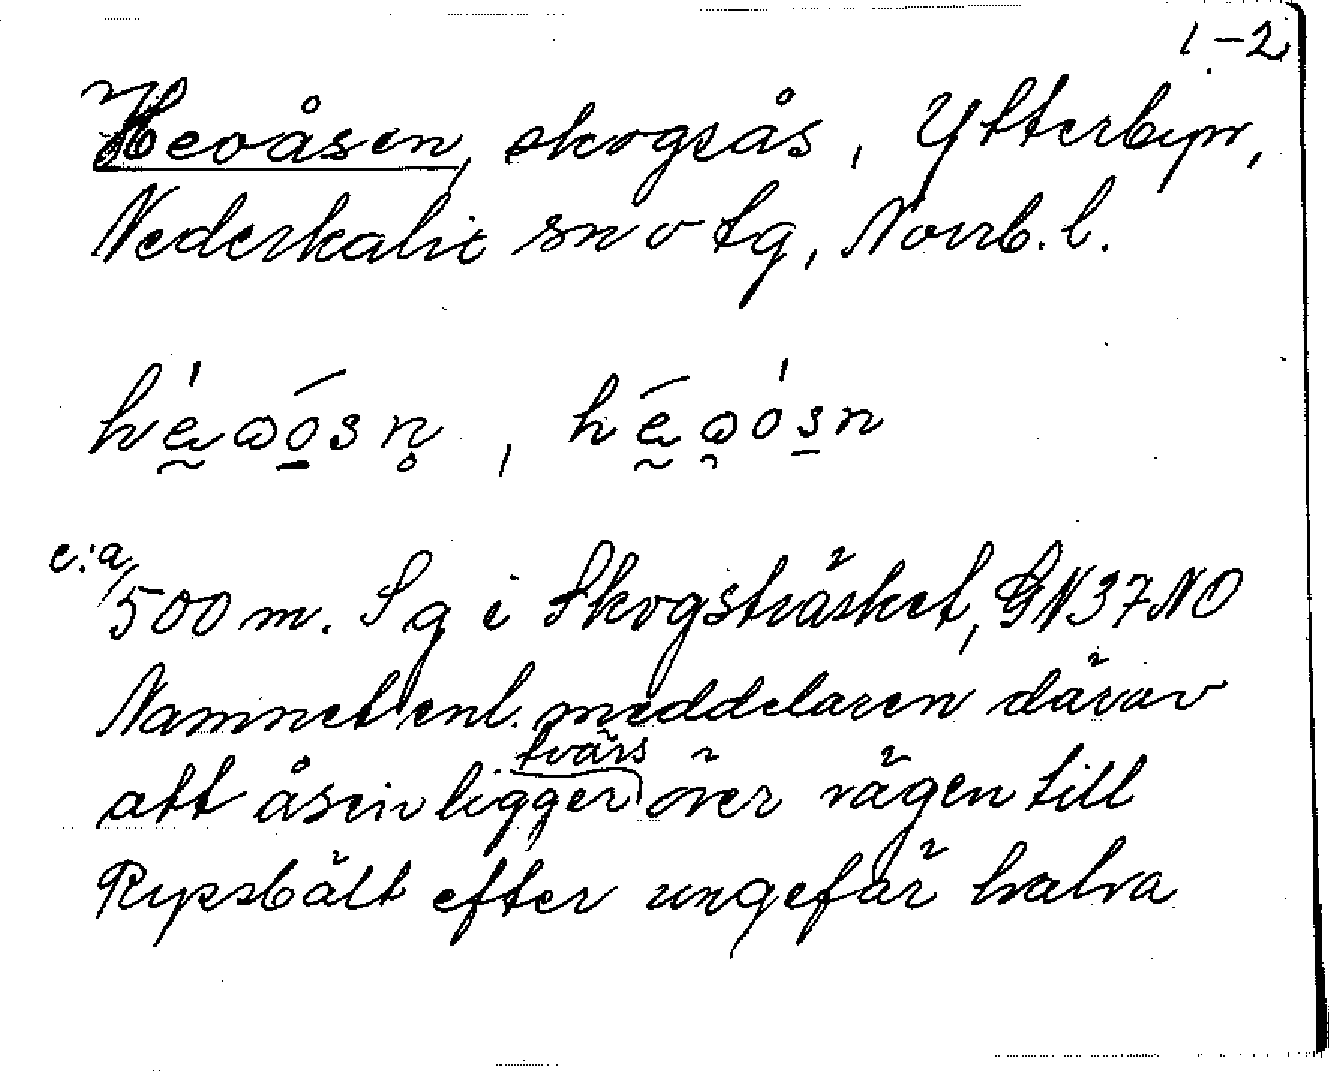 1-2
Heoåsen, skogsås, Ytterbyn,
Nederkalix sn o tg, Norrb. l.
c:a
500 m. S g i Skogsträsket, GN37NO
Namnet enl. meddelaren därav
att åsen ligger tvärs över vägen till
Rypsbält efter ungefär halva